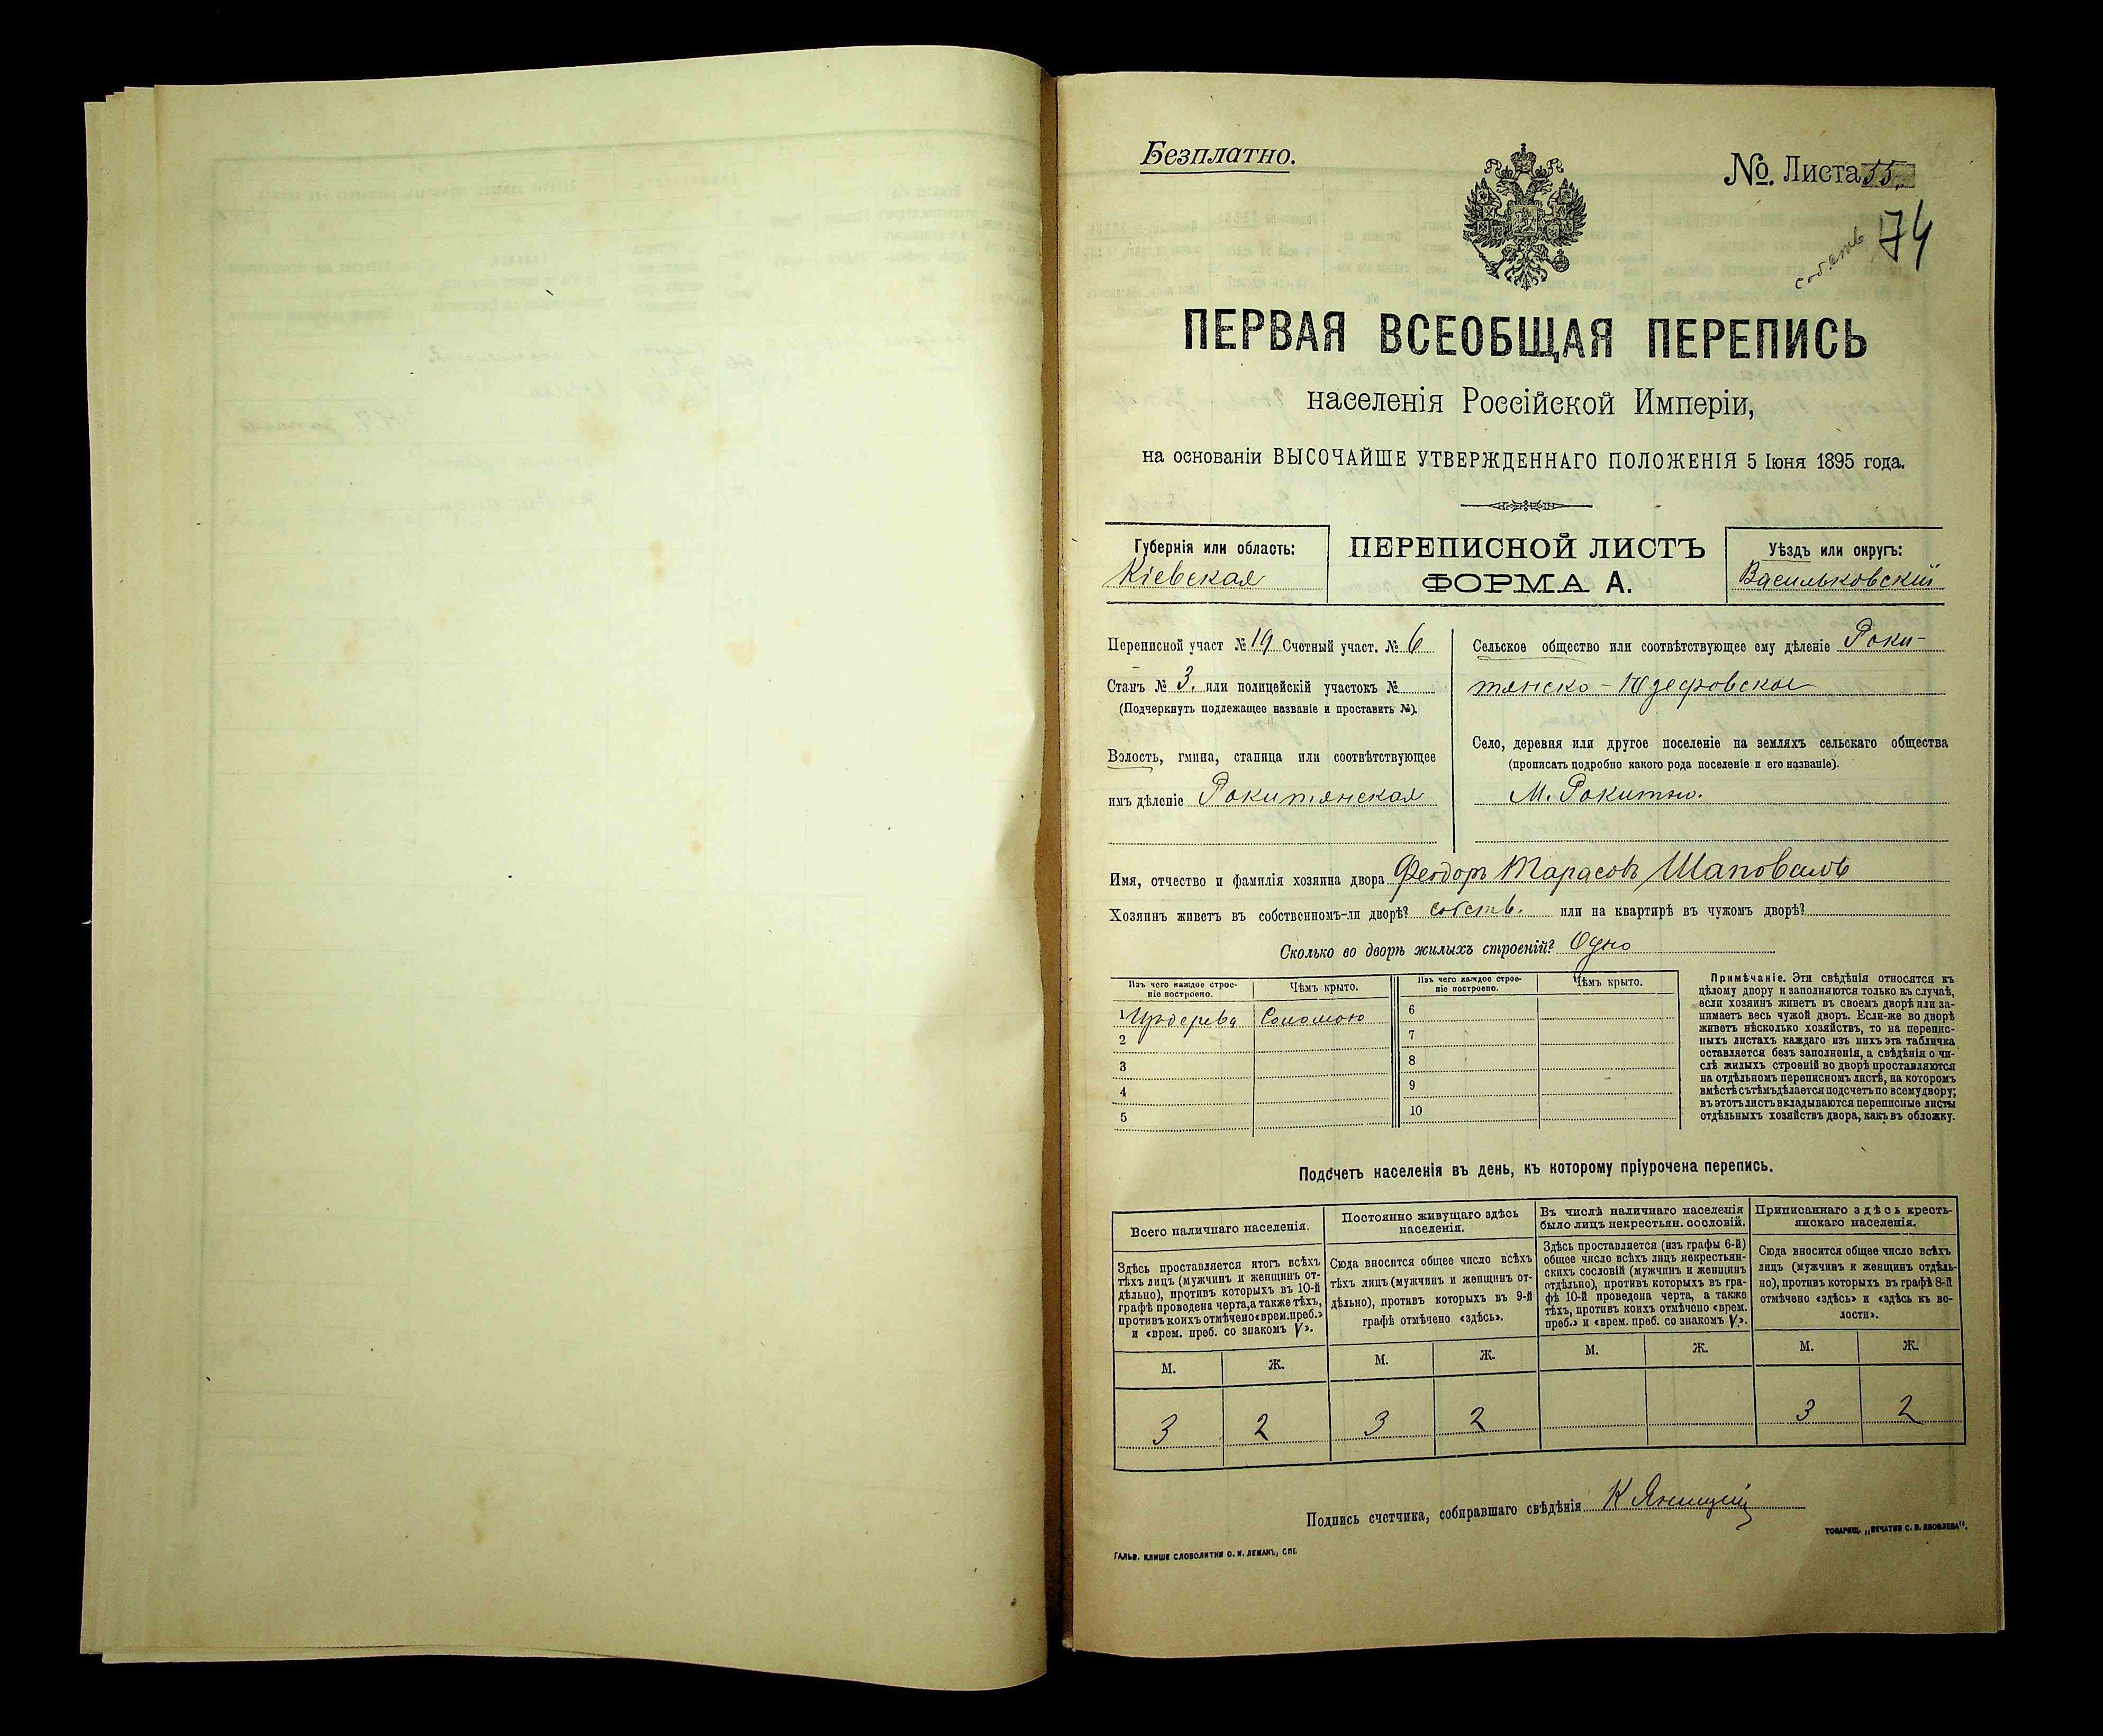 Безплатно.
№. Листа 55.
74
собств
ПЕРВАЯ ВСЕОБЩАЯ ПЕРЕПИСЬ
населенія Россійской Имперіи,
на основаніи ВЫСОЧАЙШЕ УТВЕРЖДЕННАГО ПОЛОЖЕНІЯ 5 Іюня 1895 года.
Губернія или область:
Кіевская
ПЕРЕПИСНОЙ ЛИСТЪ
ФОРМА А.
Уѣздъ или округъ:
Васильковскій
Переписной участ № 19 Счетный участ. № 6
Станъ № 3. или полицейскій участокъ №
(Подчеркнуть подлежащее названіе и проставить №).
Волость, гмина, станица или соотвѣтствующее
имъ дѣленіе Рокитянская
Сельское общество или соотвѣтствующее ему дѣленіе Роки-
тянско-Юзефовское
Село, деревня или другое поселеніе на земляхъ сельскаго общества
(прописать подробно какого рода поселеніе и его названіе).
М. Рокитно.
Имя, отчество и фамилія хозяина двора Феодоръ Тарасовъ Шаповалъ
Хозяинъ живетъ въ собственномъ-ли дворѣ? собств. или на квартирѣ въ чужомъ дворѣ?
Сколько во дворѣ жилыхъ строеній? Одно
Изъ чего каждое строе-
ніе построено.
Чѣмъ крыто.
Изъ чего каждое строе-
ніе построено.
Чѣмъ крыто.
1 Изъ дерева Соломою
2
3
4
5
6
7
8
9
10
Примѣчаніе. Эти свѣдѣнія относятся къ
цѣлому двору и заполняются только въ случаѣ,
если хозяинъ живетъ въ своемъ дворѣ или за-
нимаетъ весь чужой дворъ. Если-же во дворѣ
живетъ нѣсколько хозяйствъ, то на перепис-
ныхъ листахъ каждаго изъ нихъ эта табличка
оставляется безъ заполненія, а свѣдѣнія о чи-
слѣ жилыхъ строеній во дворѣ проставляются
на отдѣльномъ переписномъ листѣ, на которомъ
вмѣстѣ съ тѣмъ дѣлается подсчетъ по всему двору;
въ этотъ листъ вкладываются переписные листы
отдѣльныхъ хозяйствъ двора, какъ въ обложку.
Подсчетъ населенія въ день, къ которому пріурочена перепись.
Всего наличнаго населенія.
Здѣсь проставляется итогъ всѣхъ
тѣхъ лицъ (мужчинъ и женщинъ от-
дѣльно), противъ которыхъ въ 10-й
графѣ проведена черта, а также тѣхъ,
противъ коихъ отмѣчено «врем. преб.»
и «врем. преб. со знакомъ V».
Постоянно живущаго здѣсь
населенія.
Сюда вносится общее число всѣхъ
тѣхъ лицъ (мужчинъ и женщинъ от-
дѣльно), противъ которыхъ въ 9-й
графѣ отмѣчено «здѣсь».
Въ числѣ наличнаго населенія
было лицъ некрестьян. сословій.
Здѣсь проставляется (изъ графы 6-й)
общее число всѣхъ лицъ некрестьян-
скихъ сословій (мужчинъ и женщинъ
отдѣльно), противъ которыхъ въ гра-
фѣ 10-й проведена черта, а также
тѣхъ, противъ коихъ отмѣчено «врем.
преб.» и «врем. преб. со знакомъ V».
Приписаннаго здѣсь кресть-
янскаго населенія.
Сюда вносится общее число всѣхъ
лицъ (мужчинъ и женщинъ отдѣль-
но), противъ которыхъ въ графѣ 8-й
отмѣчено «здѣсь» и «здѣсь къ во-
лости».
М. Ж. М. Ж. М. Ж. М. Ж.
3 2 3 2 3 2
Подпись счетчика, собиравшаго свѣдѣнія К
ГАЛЬВ. КЛИШЕ СЛОВОЛИТНИ О. И. ЛЕМАНЪ, СПБ.
ТОВАРИЩ. „ПЕЧАТНЯ С. П. ЯКОВЛЕВА“.